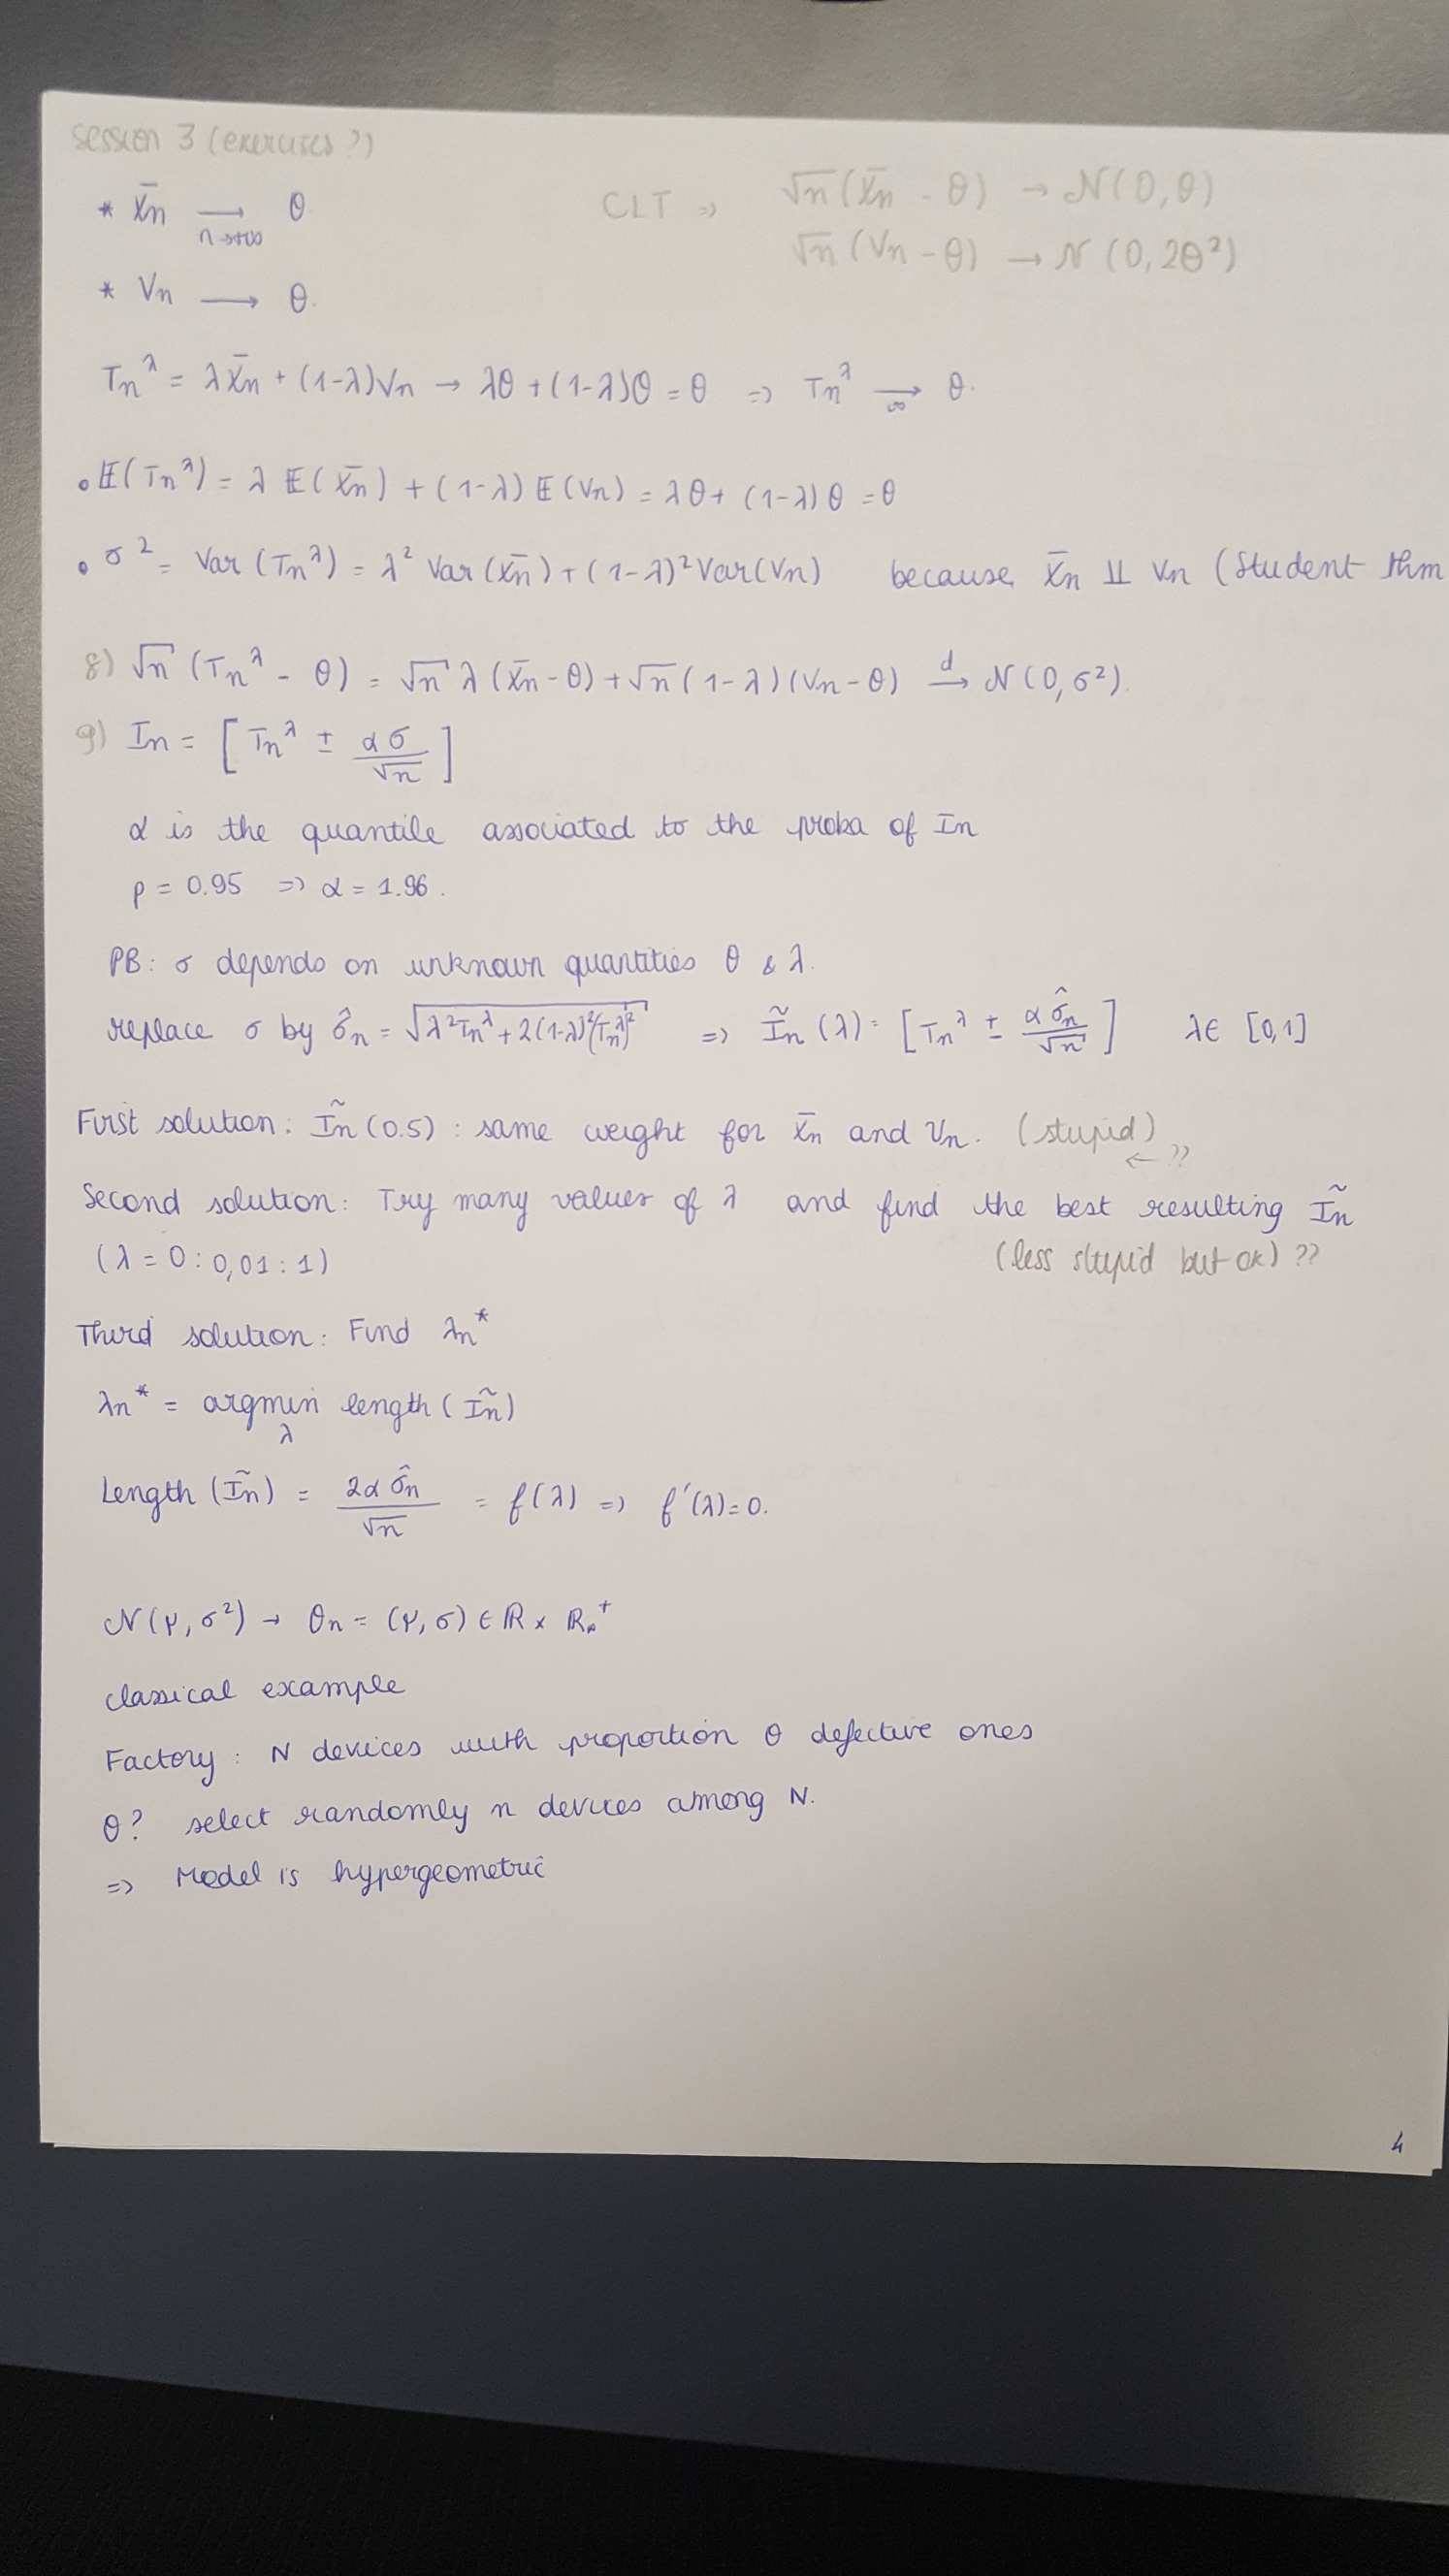 Session 3 (exercises ?)
* X̄n → θ
n→+∞
CLT => √n (X̄n - θ) → N(0, θ)
√n (Vn - θ) → N(0, 2θ²)
* Vn → θ.
Tn^λ = λX̄n + (1-λ)Vn → λθ + (1-λ)θ = θ => Tn^λ →∞ θ.
• 𝔼(Tn^λ) = λ 𝔼(X̄n) + (1-λ) 𝔼(Vn) = λθ + (1-λ)θ = θ
• σ² = Var(Tn^λ) = λ² Var(X̄n) + (1-λ)² Var(Vn) because X̄n ⫫ Vn (Student thm
8) √n (Tn^λ - θ) = √n λ (X̄n - θ) + √n (1-λ)(Vn - θ) →d N(0, σ²).
9) In = [Tn^λ ± ασ/√n]
α is the quantile associated to the proba of In
p = 0.95 => α = 1.96.
PB: σ depends on unknown quantities θ & λ.
replace σ by σ̂n = √(λ²Tn^λ + 2(1-λ)²(Tn^λ)²) => Ĩn(λ) = [Tn^λ ± ασ̂n/√n] λ ∈ [0,1]
First solution: Ĩn(0.5): same weight for X̄n and Vn. (stupid)
← ??
Second solution: Try many values of λ and find the best resulting Ĩn
(λ = 0 : 0,01 : 1) (less stupid but ok) ??
Third solution: Find λn*
λn* = argmin length(Ĩn)
λ
Length(Ĩn) = 2ασ̂n/√n = f(λ) => f'(λ)=0.
N(μ, σ²) → θn = (μ, σ) ∈ ℝ × ℝ*⁺
classical example
Factory: N devices with proportion θ defective ones
θ? select randomly n devices among N.
=> Model is hypergeometric
4